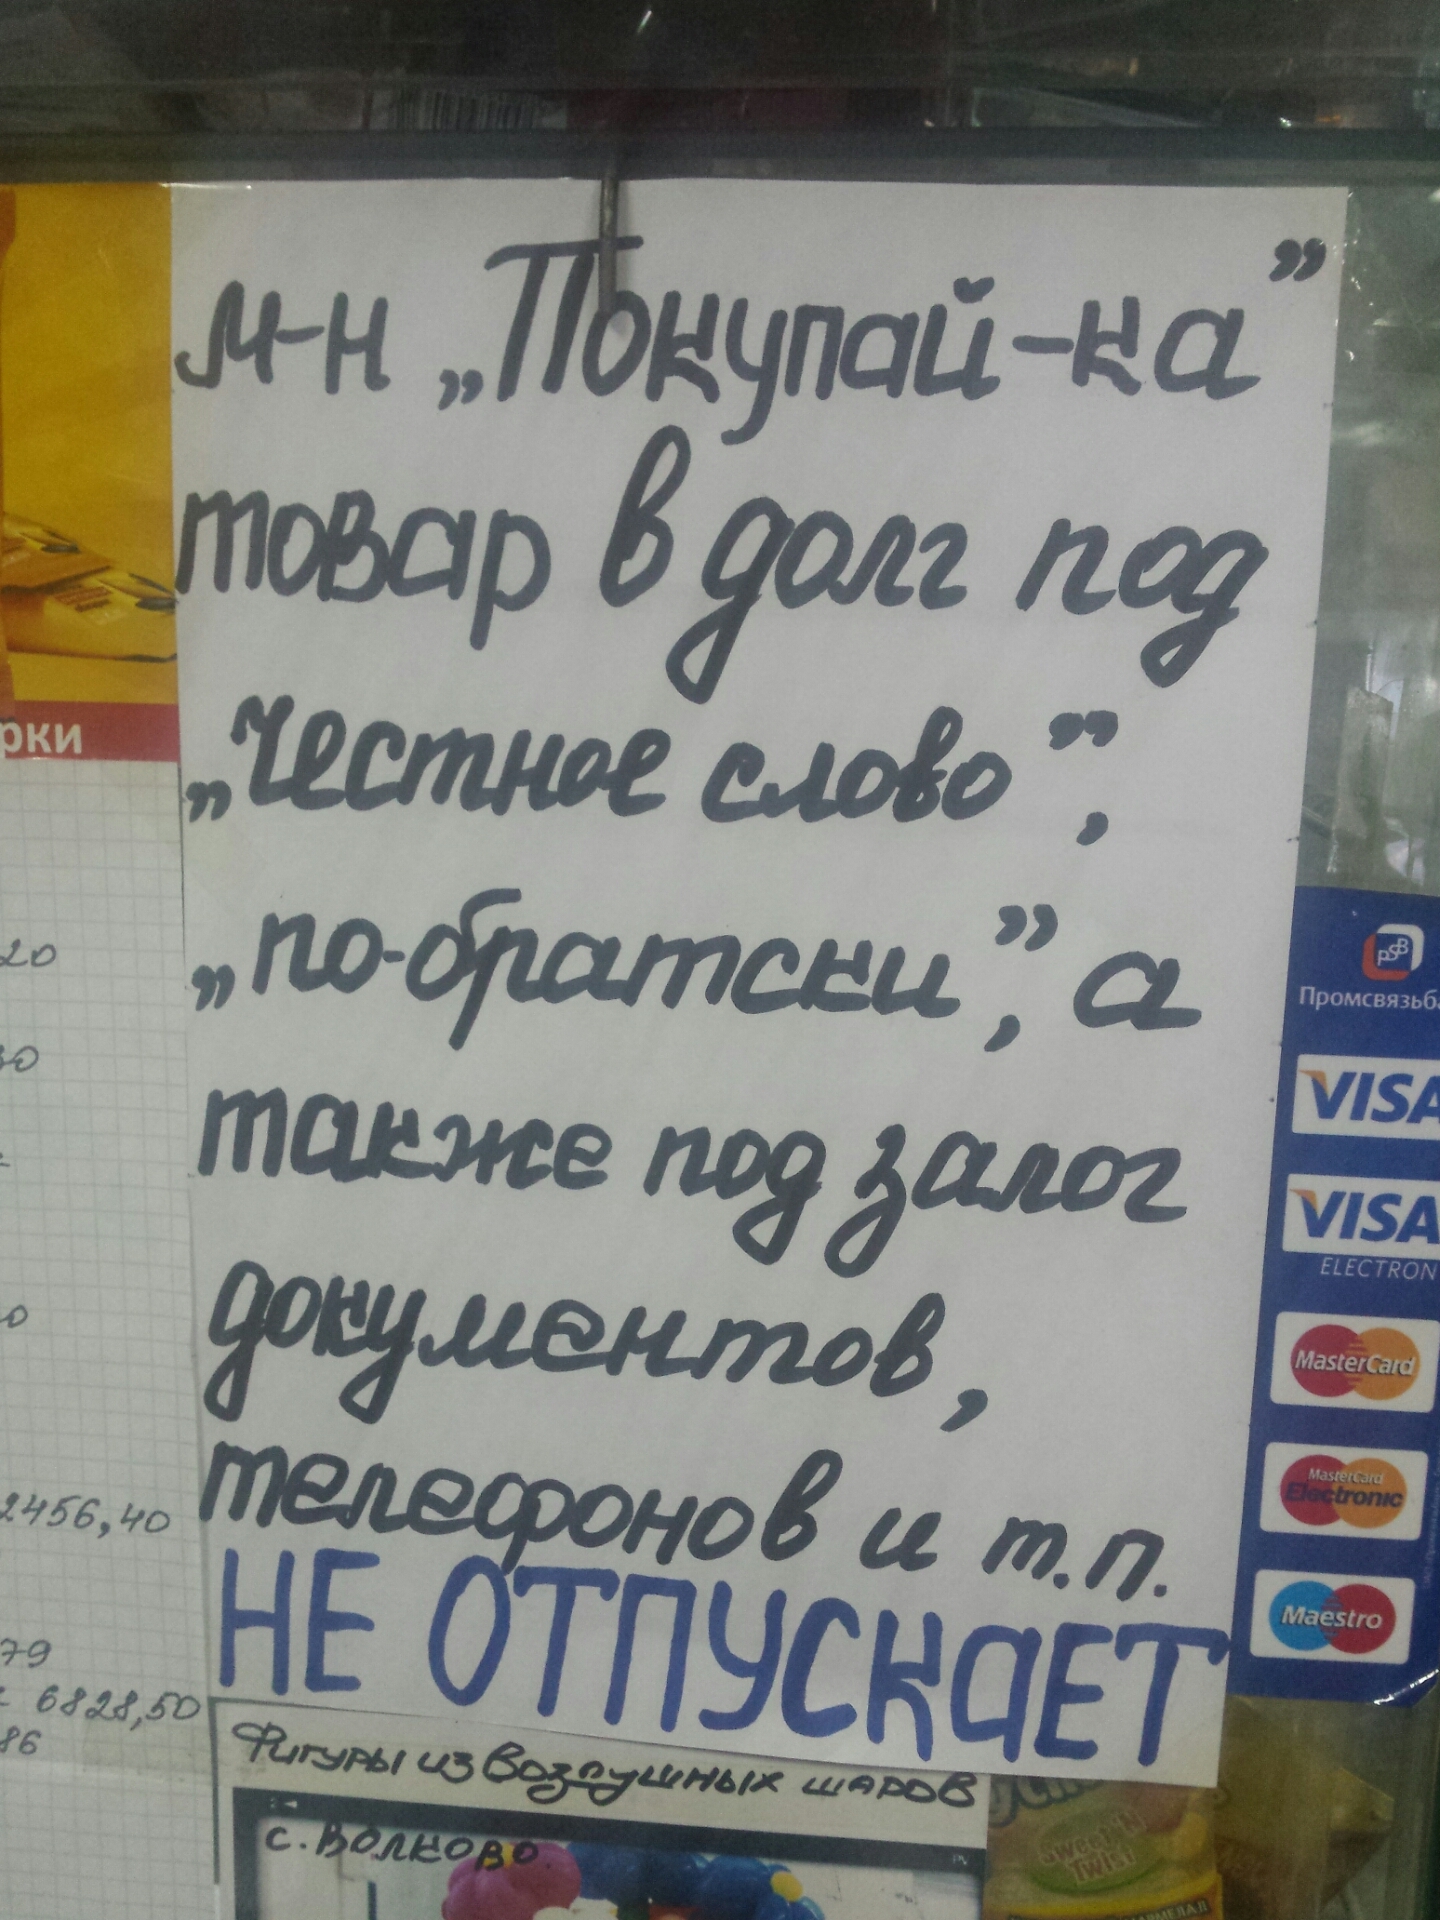 м-н „Покупай-ка”
товар в долг под
„Честное слово”,
„по-братски”, а
также под залог
документов,
телефонов и т.п.
НЕ ОТПУСКАЕТ
Фигуры из воздушных шаров
с. Волково
рки
20
30
2456,40
79
6828,50
86
PSB
Промсвязьба
VISA
VISA
ELECTRON
MasterCard
MasterCard
Electronic
Maestro
SWEET'N
TWIST